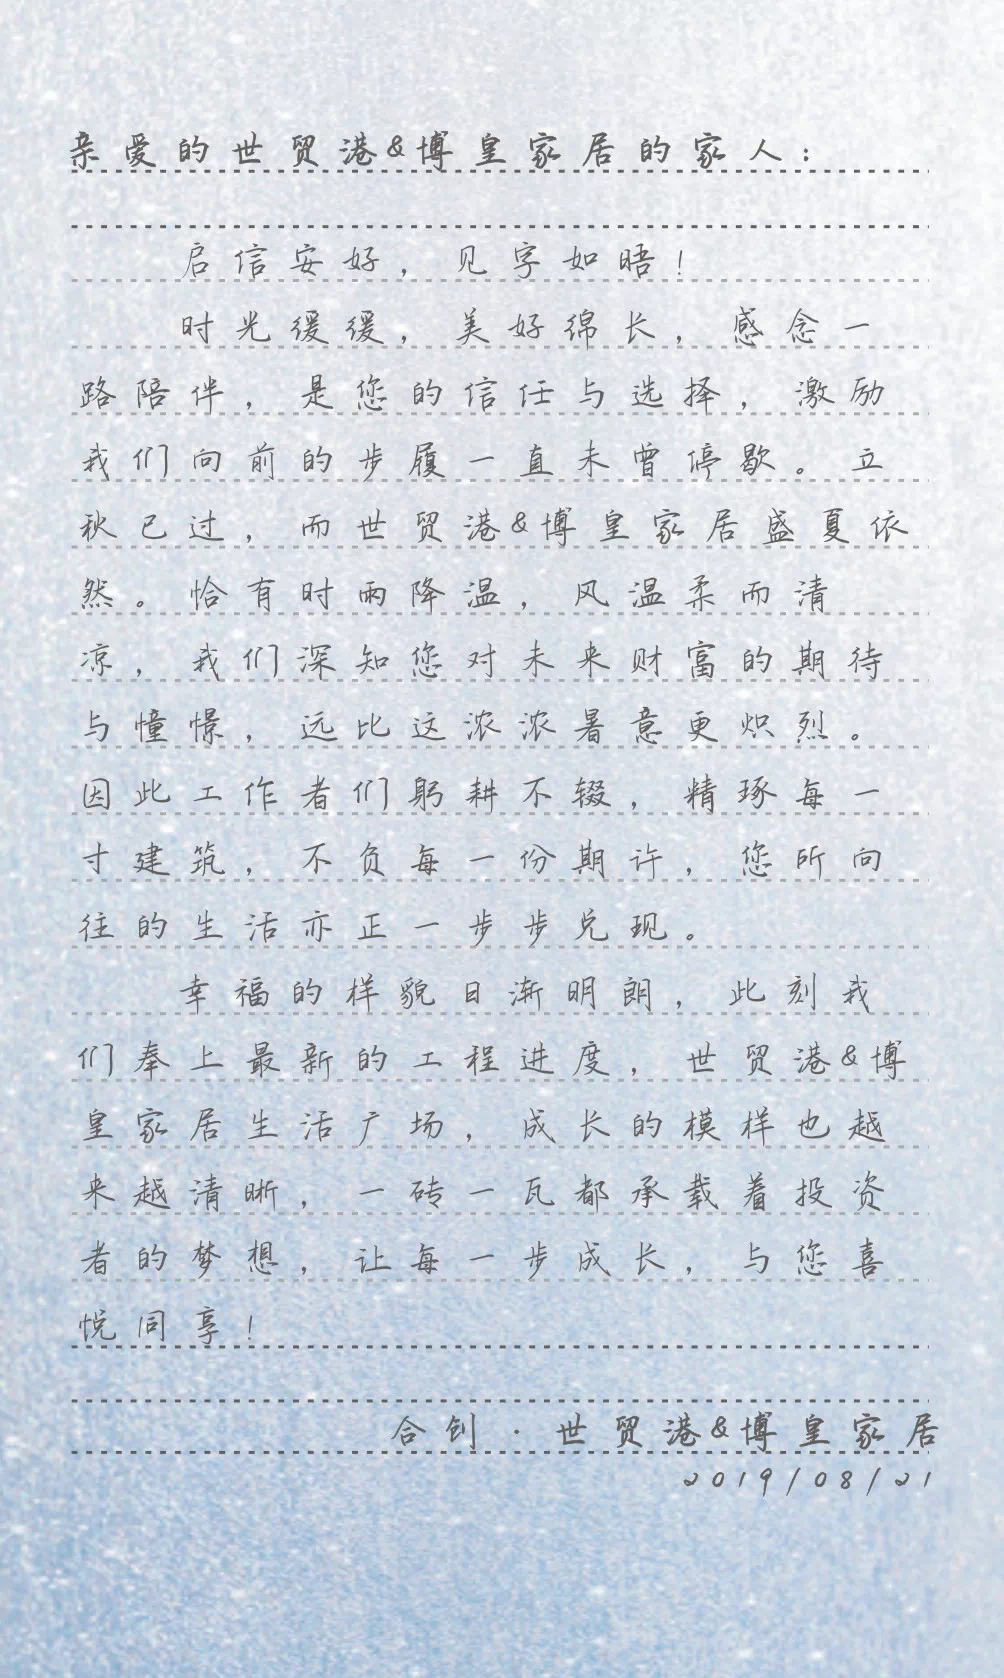 亲爱的世贸港&博皇家居的家人：
启信安好，见字如晤！
时光缓缓，美好绵长，感念一
路陪伴，是您的信任与选择，激励
我们向前的步履一直未曾停歇。立
秋已过，而世贸港&博皇家居盛夏依
然。恰有时雨降温，风温柔而清
凉，我们深知您对未来财富的期待
与憧憬，远比这浓浓暑意更炽烈。
因此工作者们躬耕不辍，精琢每一
寸建筑，不负每一份期许，您所向
往的生活亦正一步步兑现。
幸福的样貌日渐明朗，此刻我
们奉上最新的工程进度，世贸港&博
皇家居生活广场，成长的模样也越
来越清晰，一砖一瓦都承载着投资
者的梦想，让每一步成长，与您喜
悦同享！
合创·世贸港&博皇家居
2019/08/21